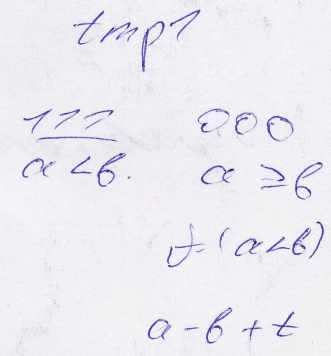 tmp1
111 000
a<b. a ≥ b
t=(a<b)
a-b+t